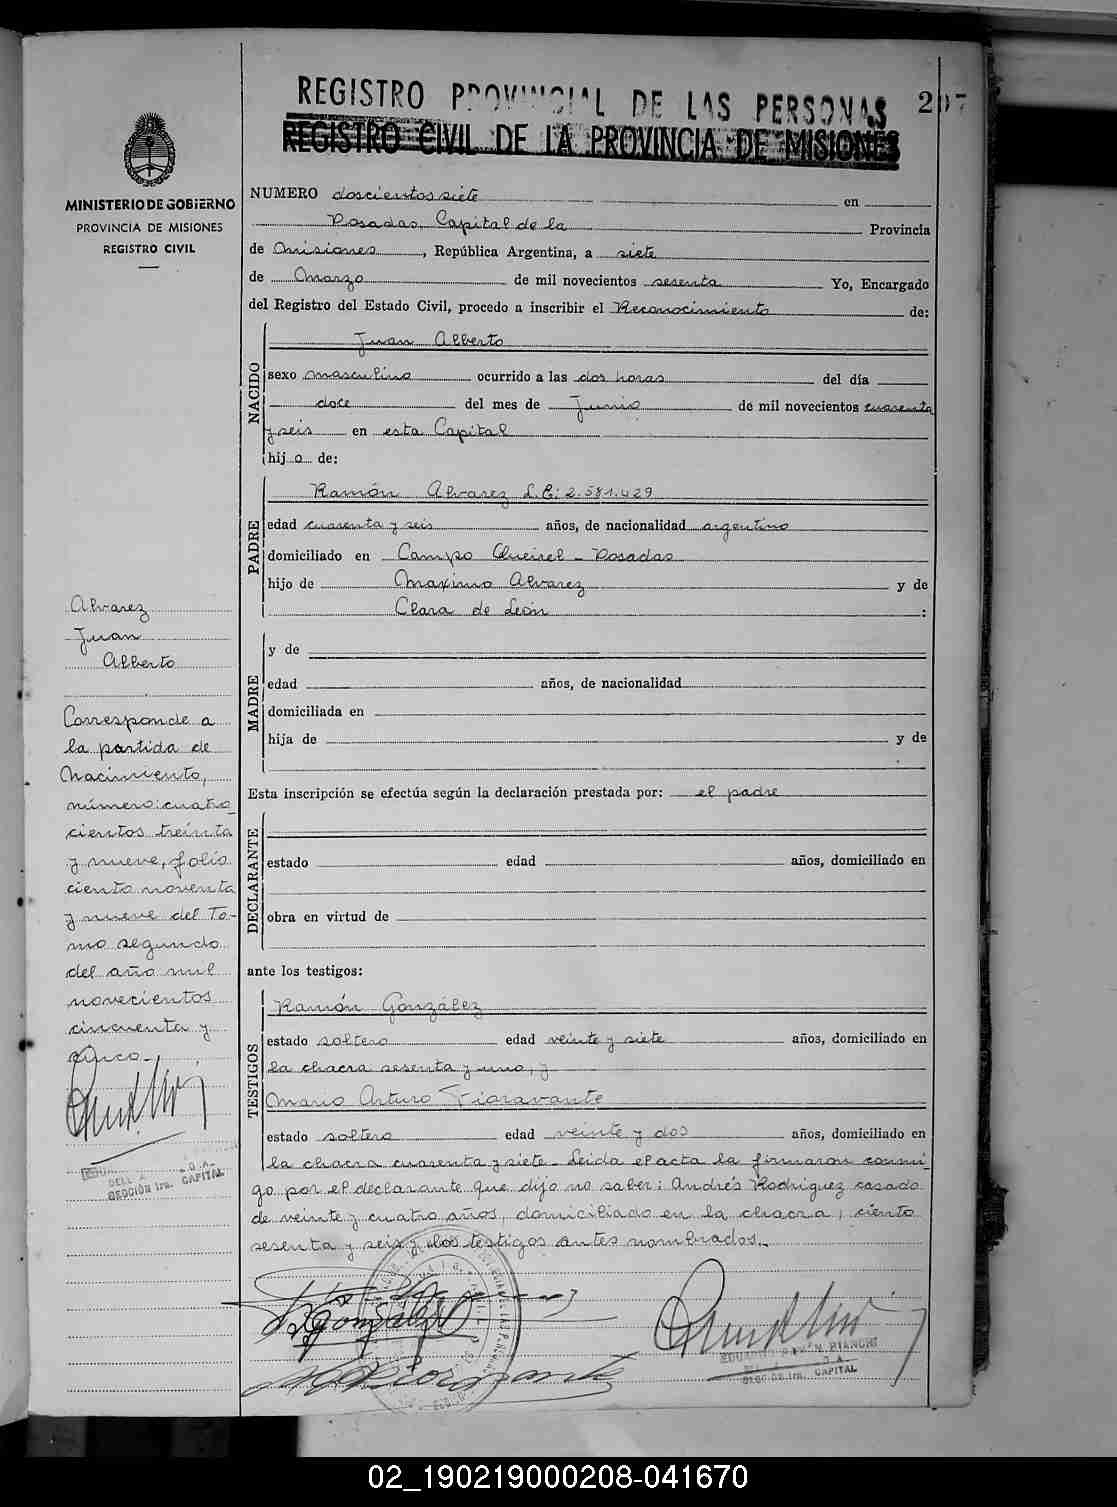 REGISTRO PROVINCIAL DE LAS PERSONAS
207
REGISTRO CIVIL DE LA PROVINCIA DE MISIONES
MINISTERIO DE GOBIERNO
PROVINCIA DE MISIONES
REGISTRO CIVIL
NUMERO doscientos siete en
Posadas, Capital de la Provincia
de Misiones, República Argentina, a siete
de Marzo de mil novecientos sesenta Yo, Encargado
del Registro del Estado Civil, procedo a inscribir el Reconocimiento de:
NACIDO
Juan Alberto
sexo masculino ocurrido a las dos horas del día
doce del mes de Junio de mil novecientos cuarenta
y seis en esta Capital
hijo de:
PADRE
Ramón Alvarez L.E: 2.581.429
edad cuarenta y seis años, de nacionalidad argentino
domiciliado en Campo Queirel - Posadas
hijo de Maximo Alvarez y de
Clara de León :
MADRE
y de
edad años, de nacionalidad
domiciliada en
hija de y de
Esta inscripción se efectúa según la declaración prestada por: el padre
DECLARANTE
estado edad años, domiciliado en
obra en virtud de
ante los testigos:
TESTIGOS
Ramón González
estado soltero edad veinte y siete años, domiciliado en
la chacra sesenta y uno, y
Mario Arturo Fioravante
estado soltero edad veinte y dos años, domiciliado en
la chacra cuarenta y siete - Leida el acta la firmaron conmi-
go por el declarante que dijo no saber: Andrés Rodriguez casado
de veinte y cuatro años, domiciliado en la chacra, ciento
sesenta y seis y los testigos antes nombrados.-
Alvarez
Juan
Alberto
Corresponde a
la partida de
Nacimiento,
número: cuatro
cientos treinta
y nueve, folio
ciento noventa
y nueve del To-
mo segundo
del año mil
novecientos
cincuenta y
cinco.-
SECCIÓN 1ra. CAPITAL
R González
M A Fioravante
BIANCHI
CAPITAL
02_190219000208-041670